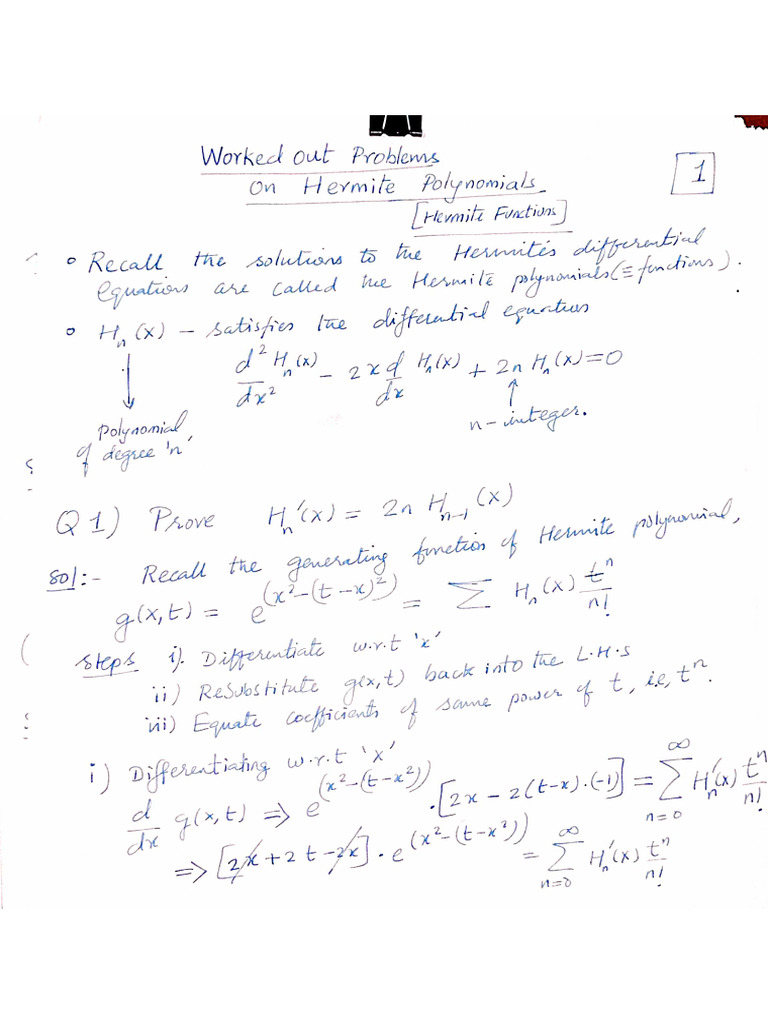 Worked out Problems
on Hermite Polynomials
1
[Hermite Functions]
° Recall the solutions to the Hermite's differential
equations are called the Hermite polynomials (≡ functions).
° Hₙ(x) – satisfies the differential equation
d²Hₙ(x)/dx² – 2x d/dx Hₙ(x) + 2n Hₙ(x) = 0
n – integer.
Polynomial
of degree 'n'
Q1) Prove Hₙ'(x) = 2n Hₙ₋₁(x)
Sol:- Recall the generating function of Hermite polynomial,
g(x,t) = e^(x²–(t–x)²) = Σ Hₙ(x) tⁿ/n!
Steps i). Differentiate w.r.t 'x'
ii) ReSubstitute g(x,t) back into the L.H.S
iii) Equate coefficients of same power of t, i.e, tⁿ.
i) Differentiating w.r.t 'x'
d/dx g(x,t) ⇒ e^(x²–(t–x²)) · [2x – 2(t–x)·(-1)] = Σ_{n=0}^∞ Hₙ'(x) tⁿ/n!
⇒ [2x + 2t – 2x] · e^(x²–(t–x²)) = Σ_{n=0}^∞ Hₙ'(x) tⁿ/n!